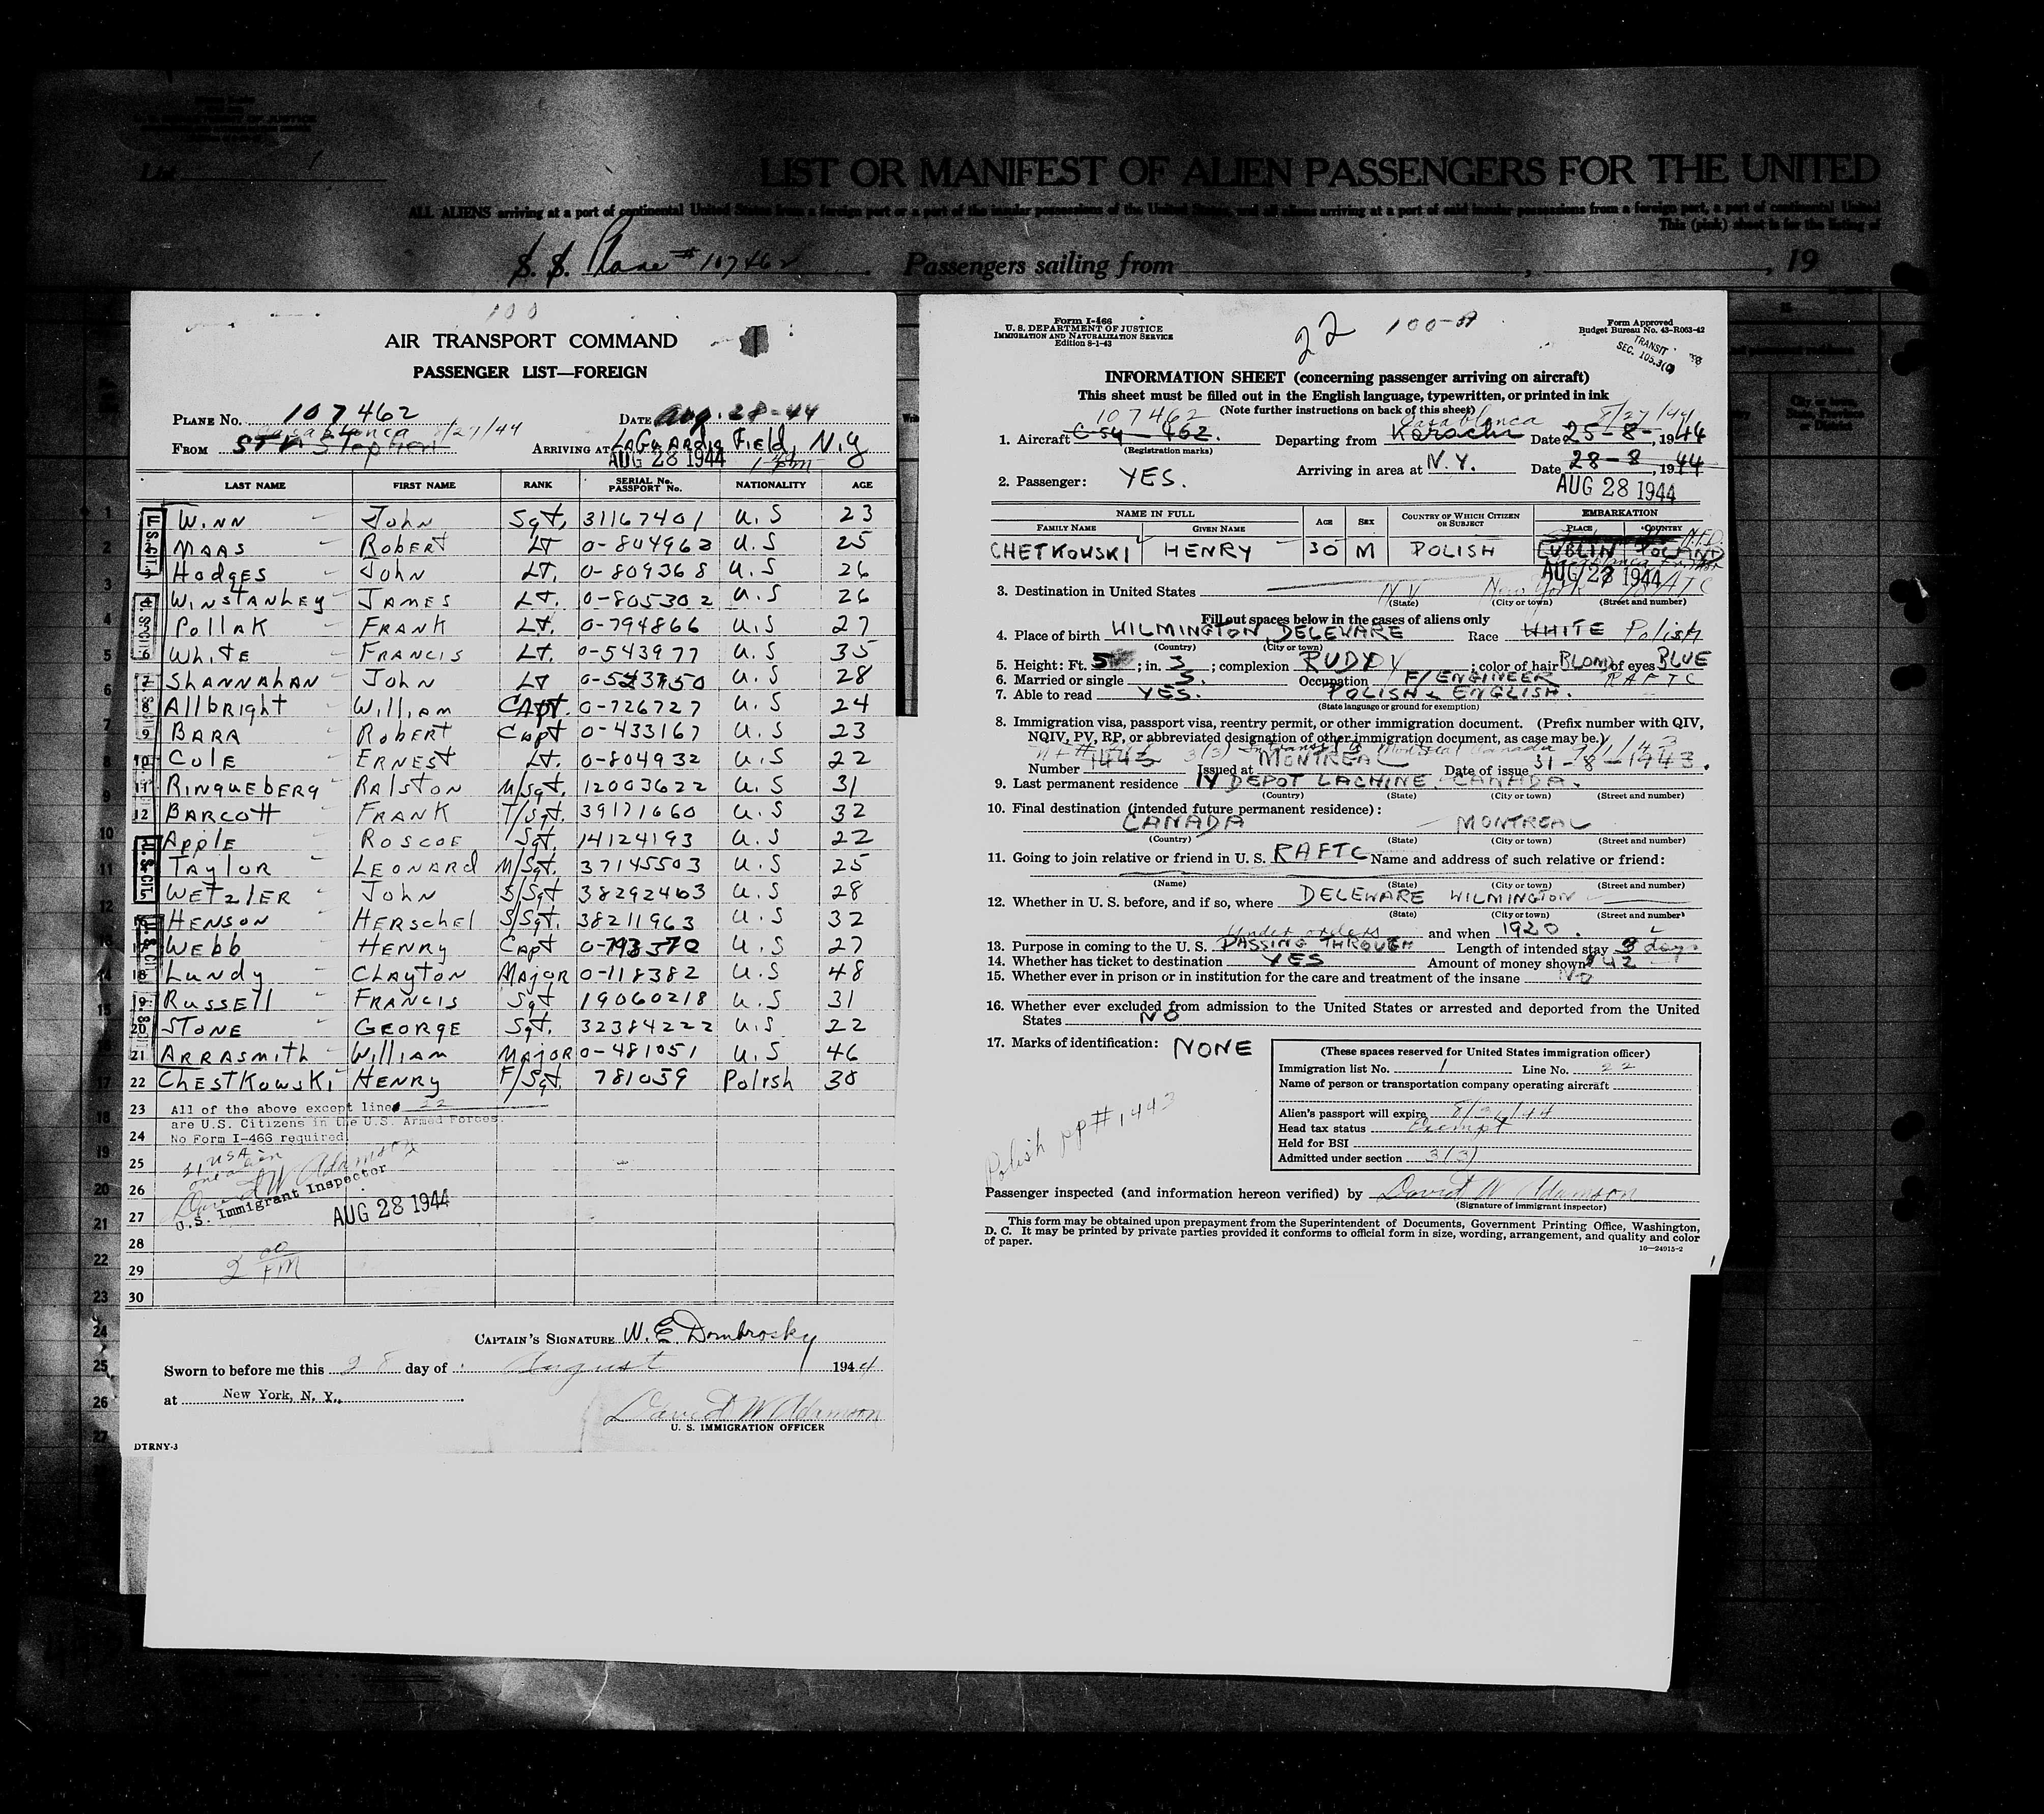 List 1
LIST OR MANIFEST OF ALIEN PASSENGERS FOR THE UNITED
ALL ALIENS arriving at a port of continental United States from a foreign port or a port of the insular possessions of the United States, and all aliens arriving at a port of said insular possessions from a foreign port, a port of continental United
This (pink) sheet is for the listing of
S. S. Plane # 107462 Passengers sailing from , , 19
100
AIR TRANSPORT COMMAND
PASSENGER LIST—FOREIGN
PLANE No. 107462 DATE Aug. 28-44
Casablanca 8/27/44
FROM Stephen ARRIVING AT LaGuardia Field, N.Y
AUG 28 1944
LAST NAME FIRST NAME RANK SERIAL No. PASSPORT No. NATIONALITY AGE
WINN John Sgt. 31167401 U.S 23
MAAS ROBERT LT 0-804962 U.S 25
HODGES John LT. 0-809368 U.S 26
WINSTANLEY JAMES LT. 0-805302 U.S 26
POLLAK FRANK LT. 0-794866 U.S 27
6 WhITE FRANCIS LT. 0-543977 U.S 35
7 SHANNAHAN JOHN LT 0-523750 U.S 28
8 Allbright William CAPT. 0-726727 U.S 24
9 BARA ROBERT Capt 0-433167 U.S 23
10 COLE ERNEST LT. 0-804932 U.S 22
11 RINGUEBERG RALSTON M/Sgt. 12003622 U.S 31
12 BARCOTT FRANK T/Sgt. 39171660 U.S 32
Apple ROSCOE Sgt. 14124193 U.S 22
TAYLOR LEONARD M/Sgt. 37145503 U.S 25
WETZLER JOHN S/Sgt 38292463 U.S 28
HENSON HERSCHEL S/Sgt. 38211963 U.S 32
17 WEBB HENRY Capt 0-793370 U.S 27
18 LUNDY CLAYTON MAJOR 0-118382 U.S 48
19 RUSSELL FRANCIS Sgt 19060218 U.S 31
20 STONE GEORGE Sgt. 32384222 U.S 22
21 ARRASMITH William MAJOR 0-481051 U.S 46
22 CHESTKOWSKI HENRY F/Sgt. 781059 Polish 30
23 All of the above except line 22
are U.S. Citizens in the U.S. Armed Forces.
24 No Form I-466 required
25 21 USA
one alien
26 David W Adamson
U.S. Immigrant Inspector
27 AUG 28 1944
28
29 2 00 PM
30
CAPTAIN'S SIGNATURE W. E. Dombrosky
Sworn to before me this 28 day of August 1944
at New York, N. Y.
David W Adamson
U. S. IMMIGRATION OFFICER
DTRNY-3
Form I-466
U. S. DEPARTMENT OF JUSTICE
IMMIGRATION AND NATURALIZATION SERVICE
Edition 8-1-43
22 100-A
Form Approved
Budget Bureau No. 43-R063-42
TRANSIT
SEC. 105.3(
INFORMATION SHEET (concerning passenger arriving on aircraft)
This sheet must be filled out in the English language, typewritten, or printed in ink
(Note further instructions on back of this sheet)
107462 Casablanca 8/27/44
1. Aircraft C-54-462. Departing from Karachi Date 25-8-, 1944
(Registration marks)
Arriving in area at N.Y. Date 28-8, 1944
2. Passenger: YES.
AUG 28 1944
NAME IN FULL AGE SEX COUNTRY OF WHICH CITIZEN OR SUBJECT EMBARKATION
FAMILY NAME GIVEN NAME PLACE COUNTRY
CHETKOWSKI HENRY 30 M POLISH LUBLIN POLAND
AUG 28 1944
3. Destination in United States N.Y New York
(State) (City or town) (Street and number)
Fill out spaces below in the cases of aliens only
4. Place of birth WILMINGTON DELEWARE Race WHITE Polish
(Country) (City or town)
5. Height: Ft. 5 ; in. 3 ; complexion RUDDY ; color of hair BLOND of eyes BLUE
6. Married or single S. Occupation F/ENGINEER RAFTC
7. Able to read YES. POLISH & ENGLISH.
(State language or ground for exemption)
8. Immigration visa, passport visa, reentry permit, or other immigration document. (Prefix number with QIV,
NQIV, PV, RP, or abbreviated designation of other immigration document, as case may be.)
3(3) In transit to Montreal Canada 9/1/43
Number 1443 Issued at MONTREAL Date of issue 31-8-1943.
9. Last permanent residence IV DEPOT LACHINE. CANADA.
(Country) (State) (City or town) (Street and number)
10. Final destination (intended future permanent residence):
CANADA MONTREAL
(Country) (State) (City or town) (Street and number)
11. Going to join relative or friend in U. S. RAFTC Name and address of such relative or friend:
(Name) (State) (City or town) (Street and number)
12. Whether in U. S. before, and if so, where DELEWARE WILMINGTON
(State) (City or town) (Street and number)
Under orders and when 1920.
13. Purpose in coming to the U. S. PASSING THROUGH Length of intended stay 3 days
14. Whether has ticket to destination YES Amount of money shown $42
15. Whether ever in prison or in institution for the care and treatment of the insane No
16. Whether ever excluded from admission to the United States or arrested and deported from the United
States NO
17. Marks of identification: NONE
(These spaces reserved for United States immigration officer)
Immigration list No. 1 Line No. 22
Name of person or transportation company operating aircraft
Alien's passport will expire 8/31/44
Head tax status Exempt
Held for BSI
Admitted under section 3(3)
Polish pp# 1443
Passenger inspected (and information hereon verified) by David W Adamson
(Signature of immigrant inspector)
This form may be obtained upon prepayment from the Superintendent of Documents, Government Printing Office, Washington,
D. C. It may be printed by private parties provided it conforms to official form in size, wording, arrangement, and quality and color
of paper.
16—24915-2